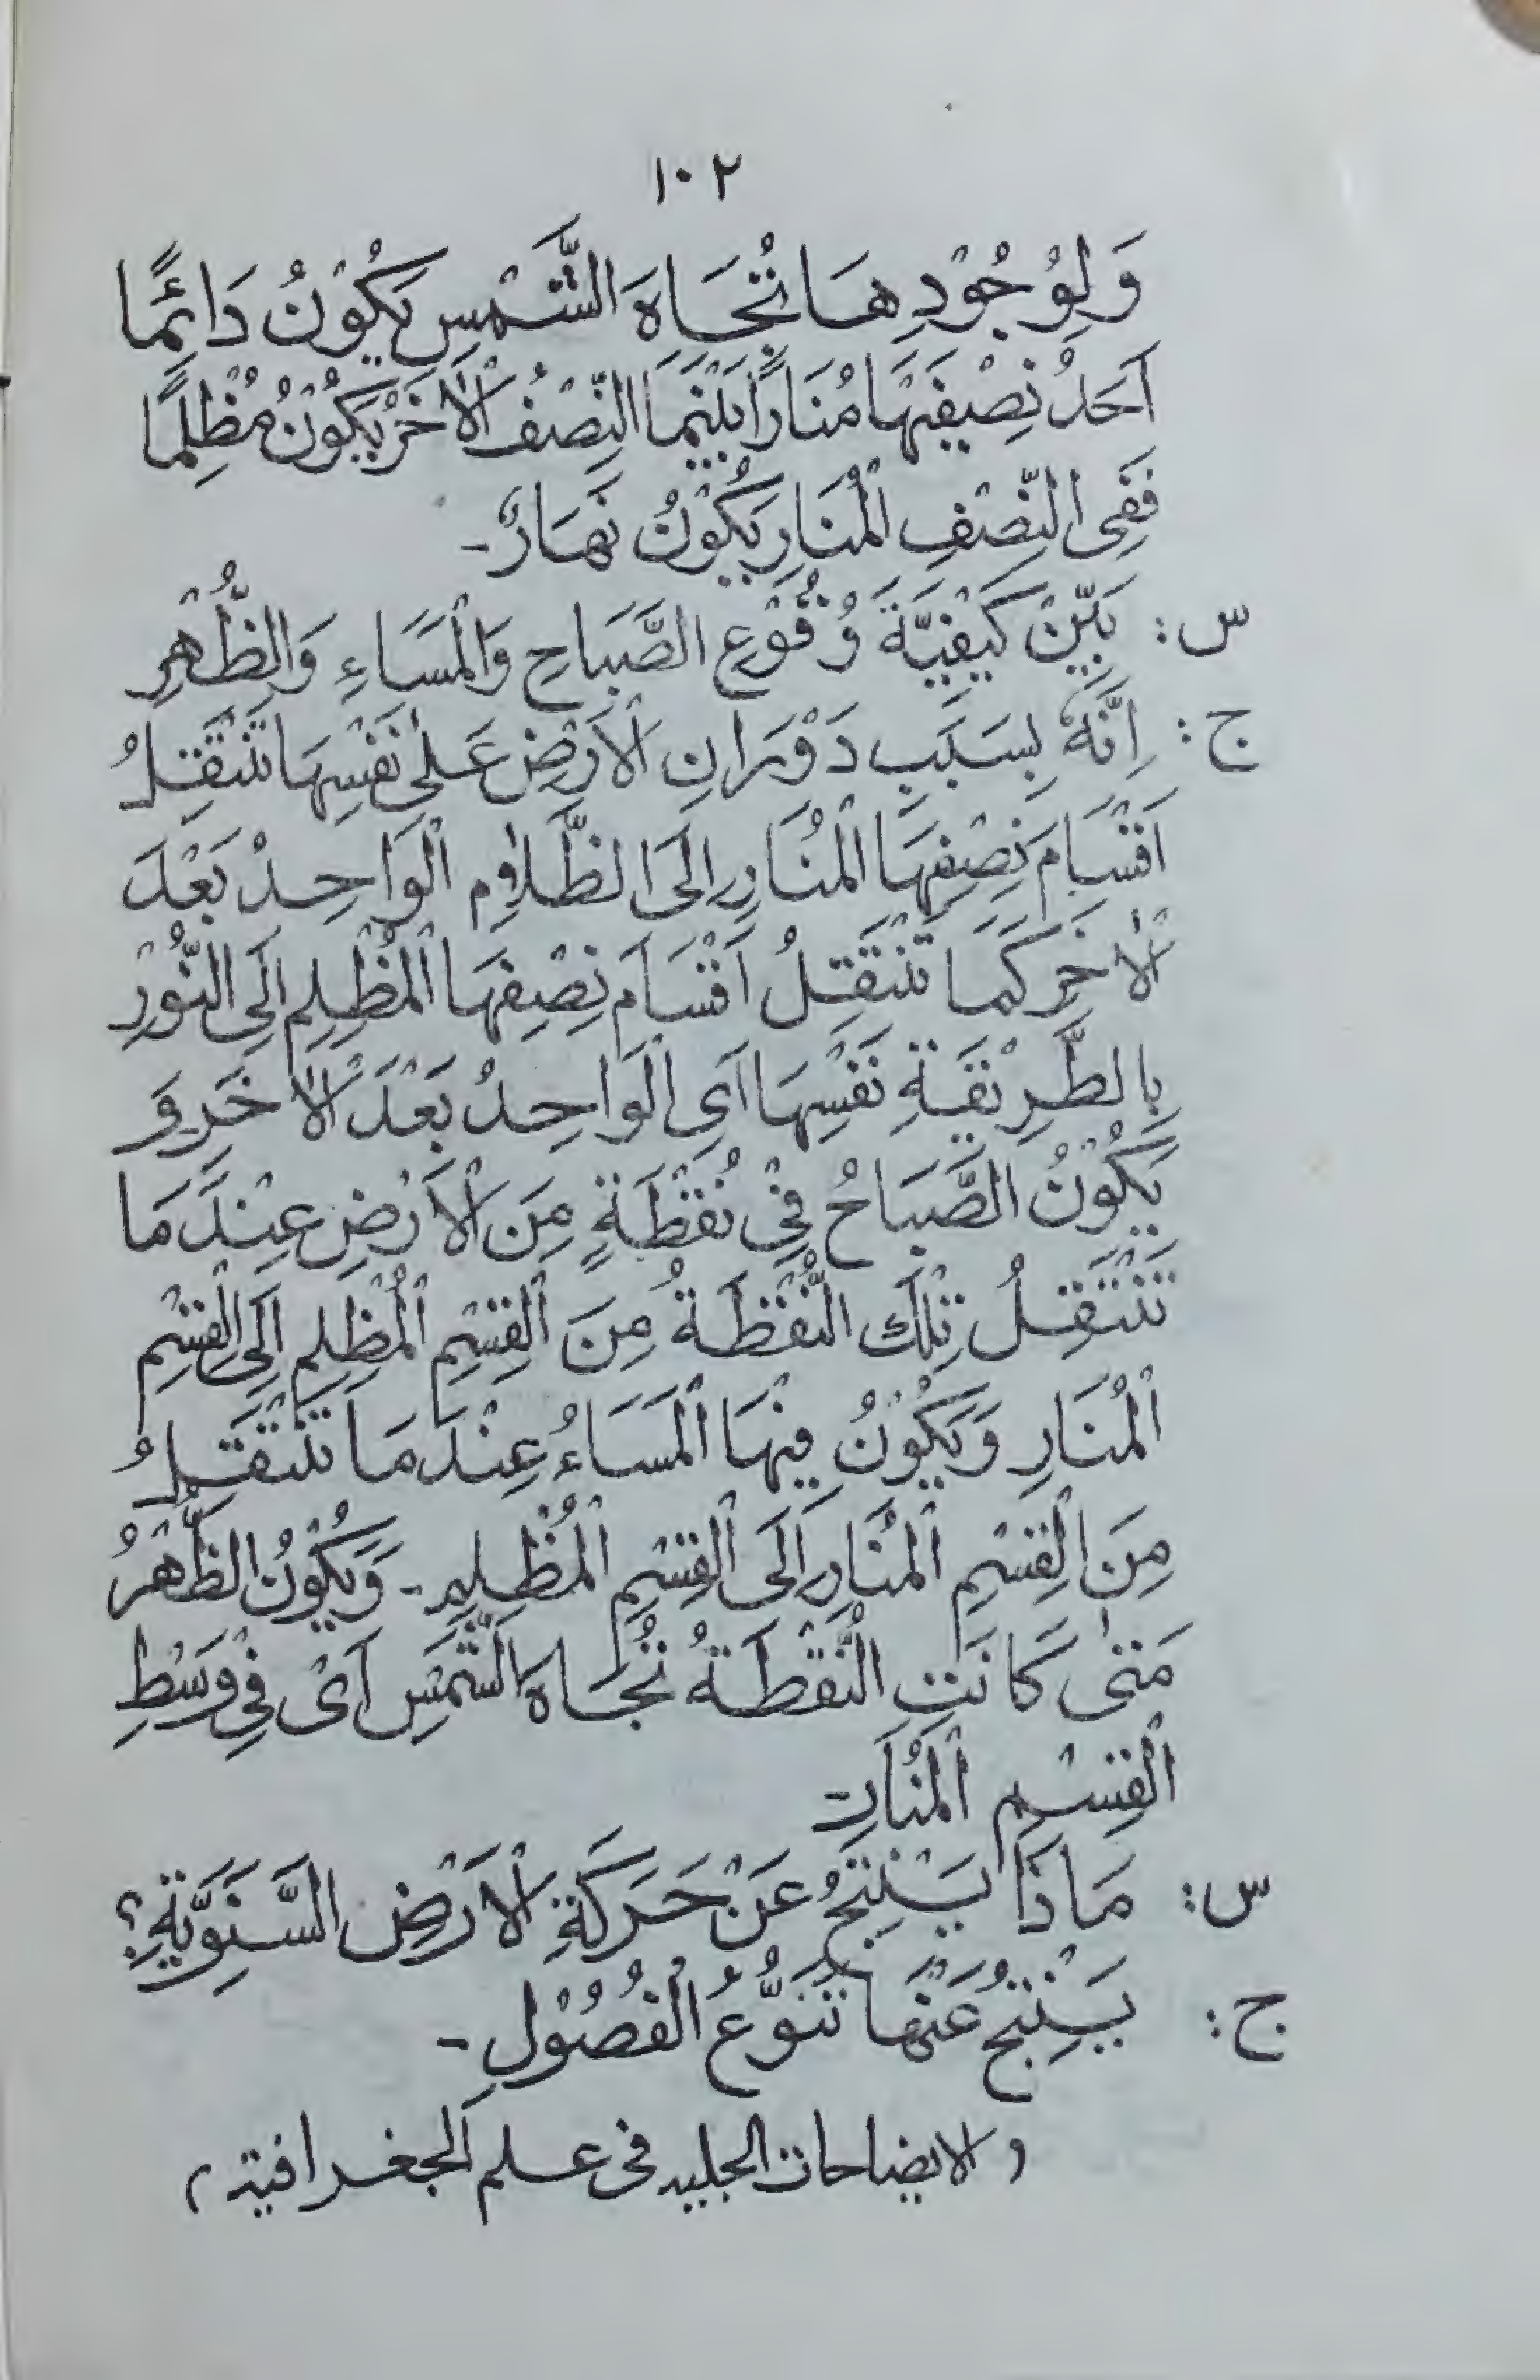 ١٠٢
وَلِوُجُوْدِهَا تُجَاهَ الشَّمْسِ يَكُوْنُ دَائِمًا
اَحَدُ نِصْفَيْهَا مُنَارًا بَيْنَمَا النِّصْفُ الْاٰخَرُ يَكُوْنُ مُظْلِمًا
فَفِى النِّصْفِ الْمُنَارِ يَكُوْنُ نَهَارٌ-
س: بَيِّنْ كَيْفِيَّةَ وُقُوْعِ الصَّبَاحِ وَالْمَسَاءِ وَالظُّهْرِ
ج: اِنَّهٗ بِسَبَبِ دَوْرَانِ الْاَرْضِ عَلٰى نَفْسِهَا تَنْتَقِلُ
اَقْسَامُ نِصْفِهَا الْمُنَارِ اِلَى الظَّلَامِ الْوَاحِدُ بَعْدَ
الْاٰخَرِ كَمَا تَنْتَقِلُ اَقْسَامُ نِصْفِهَا الْمُظْلِمِ اِلَى النُّوْرِ
بِالطَّرِيْقَةِ نَفْسِهَا اَىِ الْوَاحِدُ بَعْدَ الْاٰخَرِ وَ
يَكُوْنُ الصَّبَاحُ فِيْ نُقْطَةٍ مِنَ الْاَرْضِ عِنْدَ مَا
تَنْتَقِلُ تِلْكَ النُّقْطَةُ مِنَ الْقِسْمِ الْمُظْلِمِ اِلَى الْقِسْمِ
الْمُنَارِ وَيَكُوْنُ فِيْهَا الْمَسَاءُ عِنْدَ مَا تَنْتَقِلُ
مِنَ الْقِسْمِ الْمُنَارِ اِلَى الْقِسْمِ الْمُظْلِمِ - وَيَكُوْنُ الظُّهْرُ
مَتٰى كَانَتِ النُّقْطَةُ تُجَاهَ الشَّمْسِ اَىْ فِيْ وَسْطِ
الْقِسْمِ الْمُنَارِ-
س: مَاذَا يَنْتِجُ عَنْ حَرَكَةِ الْاَرْضِ السَّنَوِيَّةِ؟
ج: يَنْتِجُ عَنْهَا تَنَوُّعُ الْفُصُوْلِ-
(الايضاحات الجليه فى علم الجغرافية)